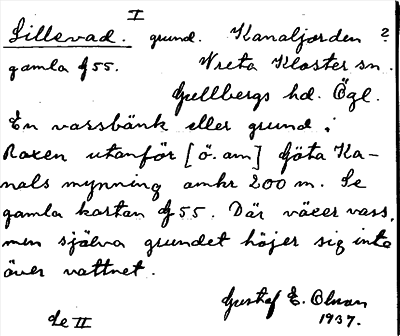 I
Lillevad. grund. Kanaljorden 2
gamla J 55. Vreta Kloster sn.
Gullbergs hd. Ögl.
En vassbänk eller grund i
Roxen utanför [ö. om] Göta Ka-
nals mynning omkr 200 m. Se
gamla kartan J 55. Där växer vass,
men själva grundet höjer sig inte
över vattnet.
Gustaf E. Olsson
Se II 1937.